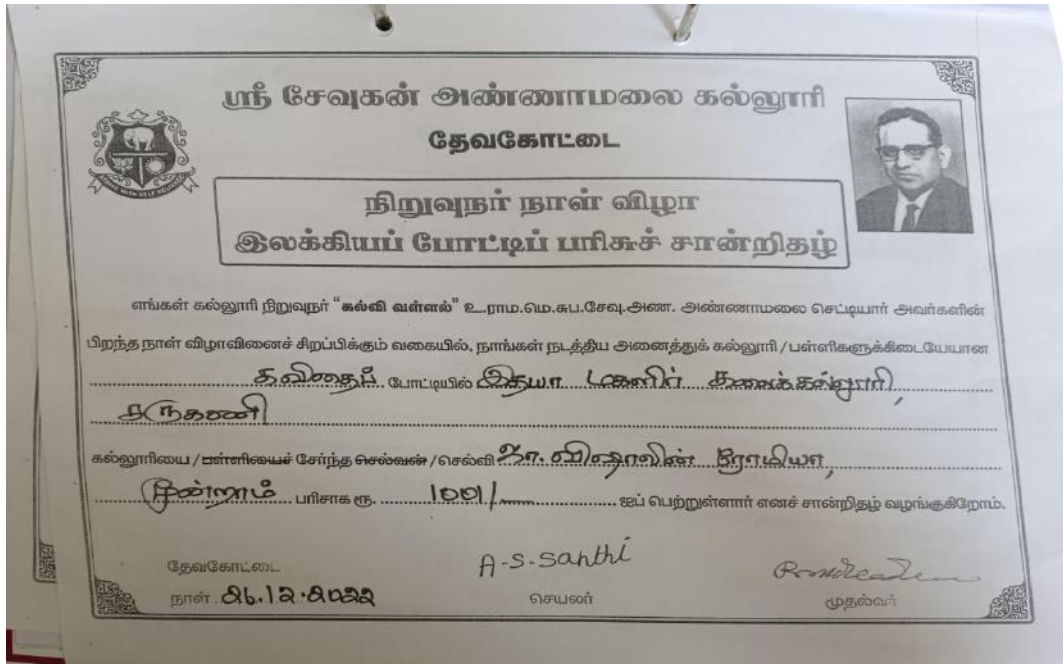 ஸ்ரீ சேவுகன் அண்ணாமலை கல்லூரி
தேவகோட்டை
நிறுவுநர் நாள் விழா
இலக்கியப் போட்டிப் பரிசுச் சான்றிதழ்
எங்கள் கல்லூரி நிறுவுநர் “கல்வி வள்ளல்” உ.ராம.மெ.சுப.சேவு.அண. அண்ணாமலை செட்டியார் அவர்களின்
பிறந்த நாள் விழாவினைச் சிறப்பிக்கும் வகையில், நாங்கள் நடத்திய அனைத்துக் கல்லூரி / பள்ளிகளுக்கிடையேயான
கவிதைப் போட்டியில் இதயா மகளிர் கலைக்கல்லூரி,
சருகணி
கல்லூரியை / பள்ளியைச் சேர்ந்த செல்வன் / செல்வி விஷாலின் ரோமியா,
மூன்றாம் பரிசாக ரூ. 1001/ ஐப் பெற்றுள்ளார் எனச் சான்றிதழ் வழங்குகிறோம்.
தேவகோட்டை
நாள் 26.12.2022
A-S-Santhi
செயலர்
முதல்வர்